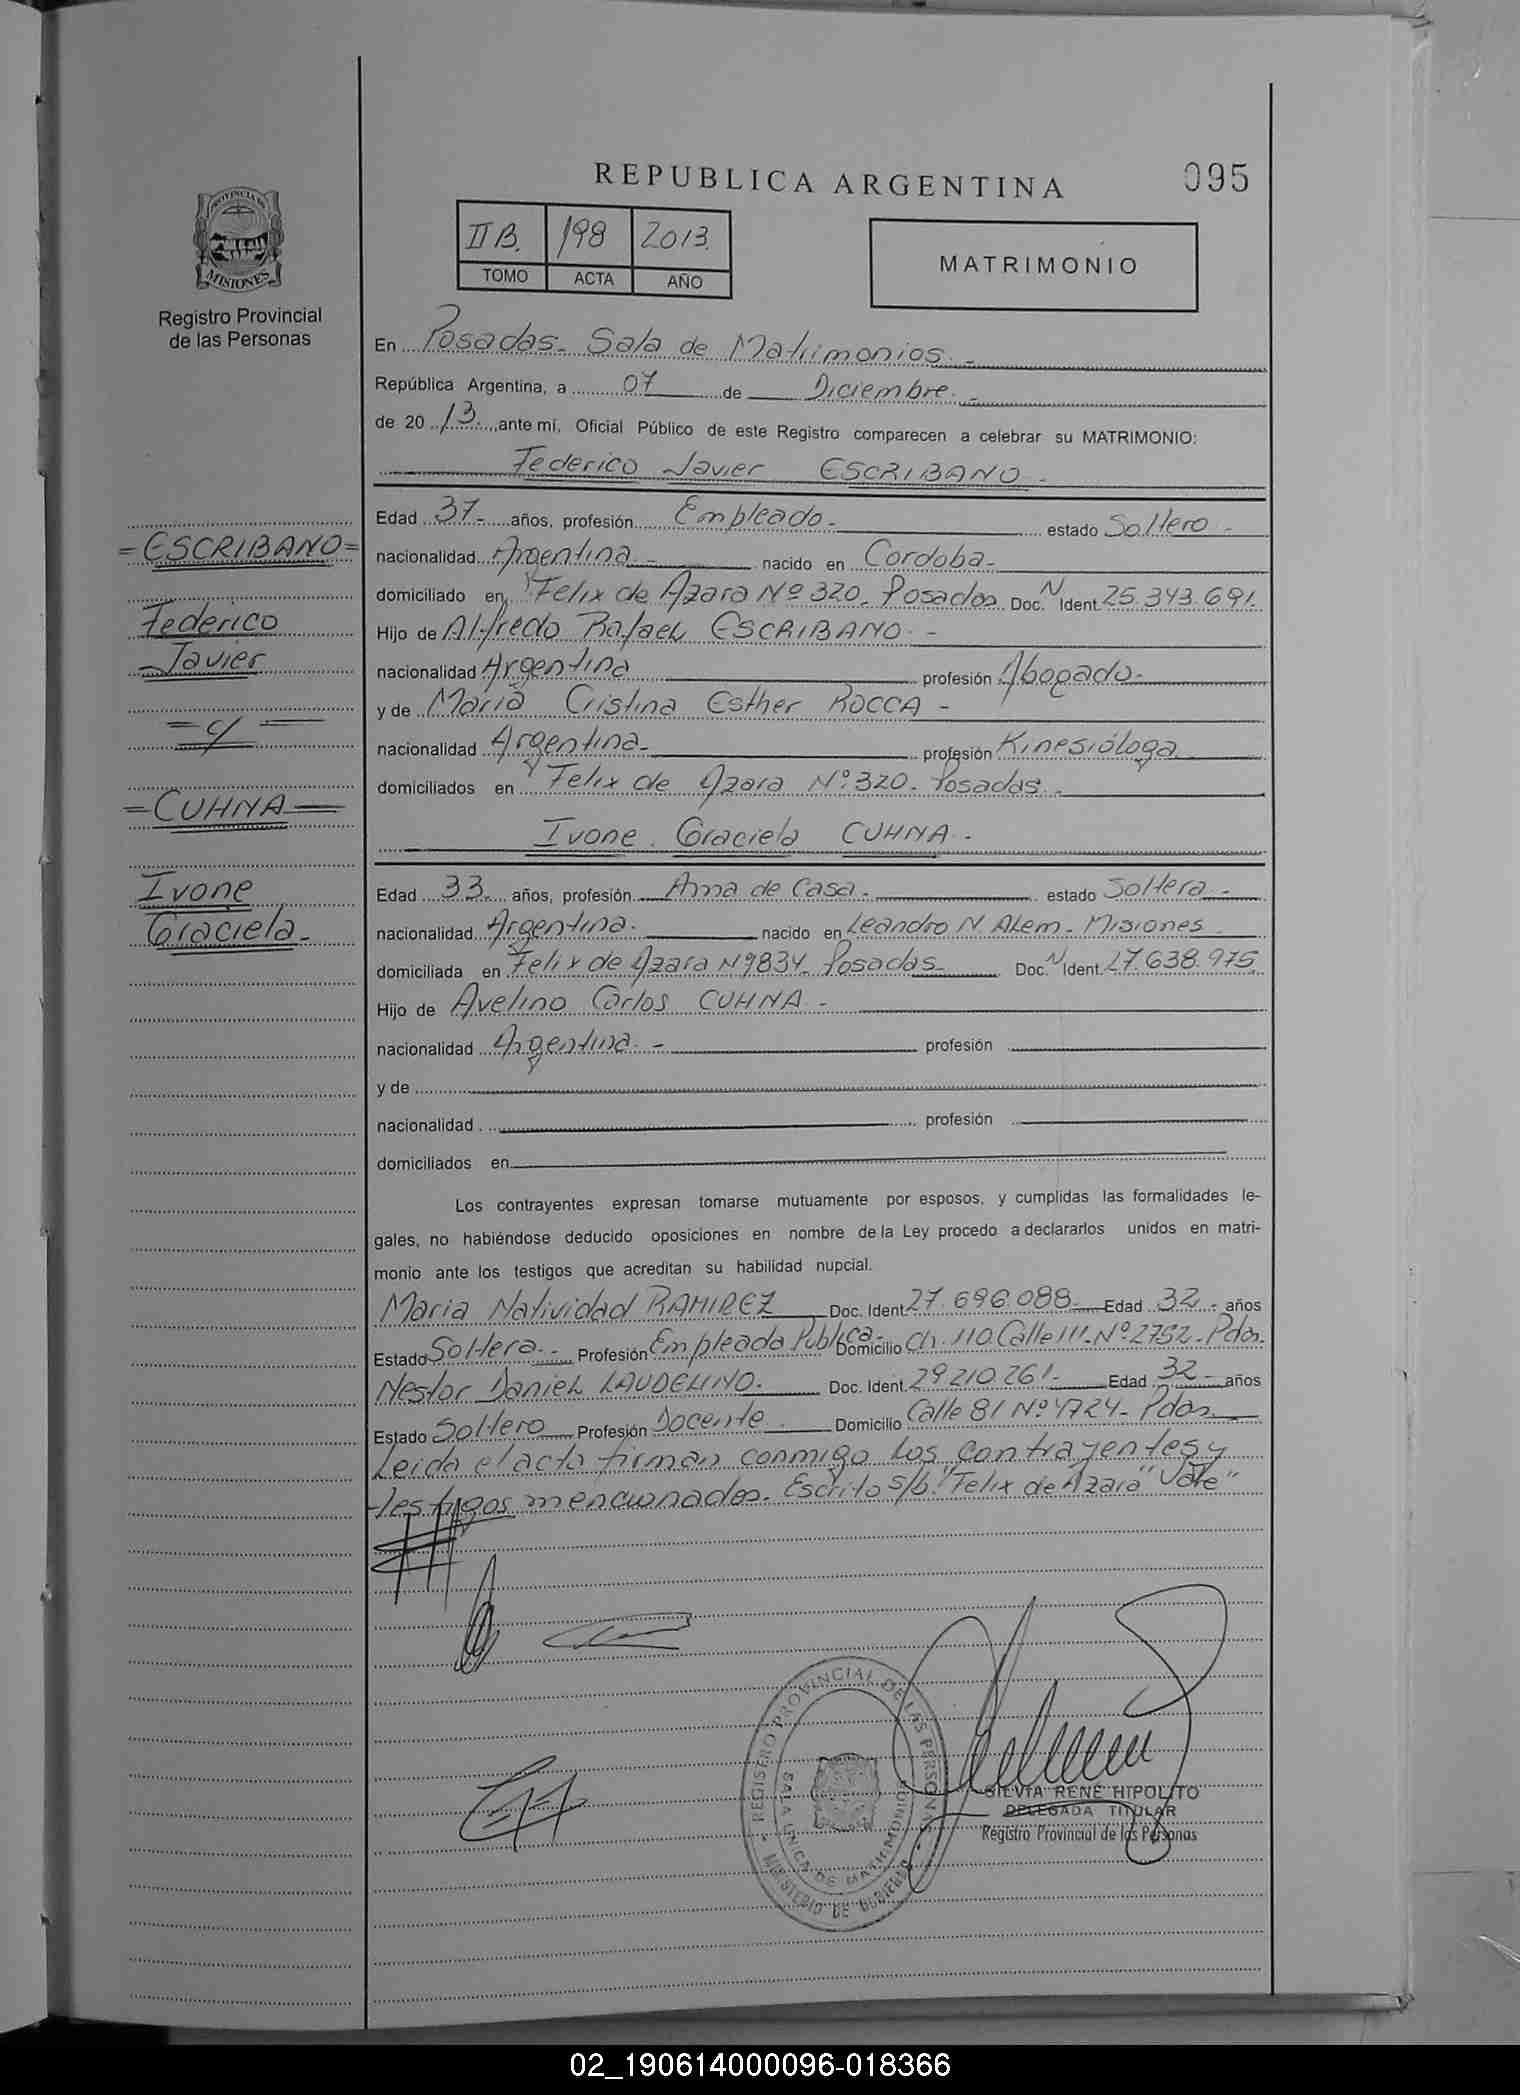 REPUBLICA ARGENTINA
095
PROVINCIA DE
MISIONES
Registro Provincial
de las Personas
II B. 198 2013.
TOMO ACTA AÑO
MATRIMONIO
En Posadas. Sala de Matrimonios. -
República Argentina, a 07 de Diciembre. -
de 20 13. ante mí, Oficial Público de este Registro comparecen a celebrar su MATRIMONIO:
Federico Javier ESCRIBANO -
Edad 37- años, profesión Empleado- estado Soltero -
nacionalidad Argentina - nacido en Cordoba-
domiciliado en Felix de Azara Nº 320. Posadas Doc. N Ident. 25.343.691.
Hijo de Alfredo Rafael ESCRIBANO. -
nacionalidad Argentina profesión Abogado-
y de Maria Cristina Esther ROCCA -
nacionalidad Argentina- profesión Kinesióloga
domiciliados en Felix de Azara Nº 320. Posadas. -
Ivone Graciela CUHNA -
Edad 33- años, profesión Ama de Casa. estado Soltera -
nacionalidad Argentina. nacido en Leandro N. Alem - Misiones
domiciliada en Felix de Azara Nº 834. Posadas- Doc. N Ident. 27.638.975
Hijo de Avelino Carlos CUHNA -
nacionalidad Argentina. - profesión
y de
nacionalidad profesión
domiciliados en
Los contrayentes expresan tomarse mutuamente por esposos, y cumplidas las formalidades le-
gales, no habiéndose deducido oposiciones en nombre de la Ley procedo a declararlos unidos en matri-
monio ante los testigos que acreditan su habilidad nupcial.
Maria Natividad RAMIREZ Doc. Ident. 27.696.088- Edad 32- años
Estado Soltera.- Profesión Empleada Publica- Domicilio Ch. 110. Calle 111-Nº 2752-Pdas.
Nestor Daniel LAUDELINO. Doc. Ident. 29210.261- Edad 32- años
Estado Soltero Profesión Docente Domicilio Calle 81 Nº 4724- Pdas.
Leida el acta firman conmigo los contrayentes y
testigos mencionados. Escrito s/b. "Felix de Azara" Vale"
=ESCRIBANO=
Federico
Javier
= c/ =
=CUHNA=
Ivone
Graciela-
REGISTRO PROVINCIAL DE LAS PERSONAS
SALA UNICA DE MATRIMONIO
MINISTERIO DE GOBIERNO
SILVIA RENÉ HIPOLITO
DELEGADA TITULAR
Registro Provincial de las Personas
02_190614000096-018366